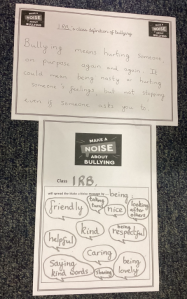 1RB's class definition of bullying
Bullying means hurting someone
on purpose again and again. It
could mean being nasty or hurting
someone's feelings, but not stopping
even if someone asks you to.
MAKE A
NOISE
ABOUT
BULLYING
Class 1RB.
being
friendly
taking turns
nice
looking after others
helpful
kind
being respectful
Caring
saying kind words
sharing
being lovely